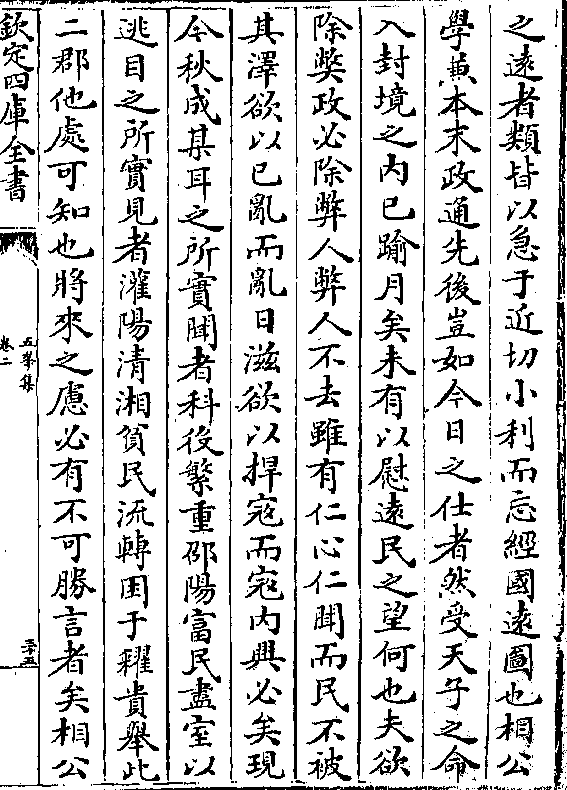 之遠者類皆以急于近切小利而忘經國遠圖也相公
學兼本末政通先後豈如今日之仕者然受天子之命
入封境之内已踰月矣未有以慰遠民之望何也夫欲
除獘政必除弊人弊人不去雖有仁心仁聞而民不被
其澤欲以已亂而亂日滋欲以捍宼而宼内興必矣現
今秋成某耳之所實聞者科役繁重邵陽富民盡室以
逃目之所實見者灌陽清湘貧民流轉困于糴貴舉此
二郡他處可知也將來之慮必有不可勝言者矣相公
欽定四庫全書
五峯集
卷二
三十五